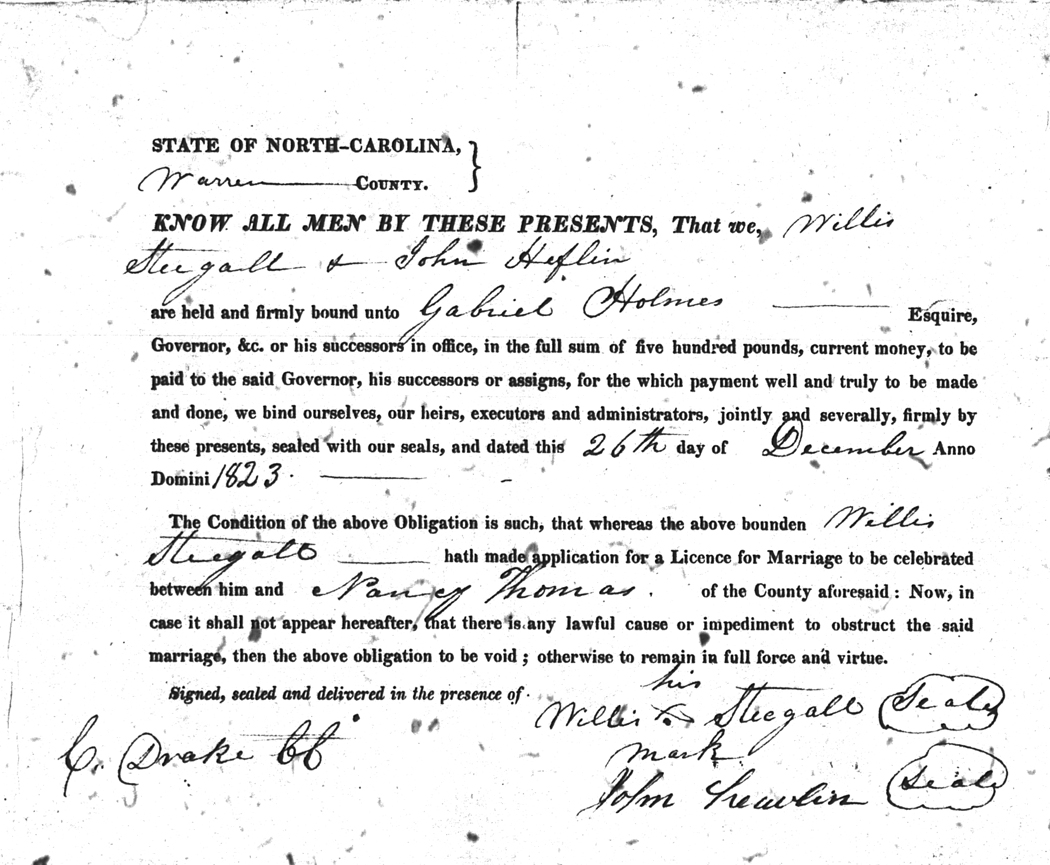 STATE OF NORTH-CAROLINA, }
Warren COUNTY.
KNOW ALL MEN BY THESE PRESENTS, That we, Willis
Steegall & John Heflin
are held and firmly bound unto Gabriel Holmes Esquire,
Governor, &c. or his successors in office, in the full sum of five hundred pounds, current money, to be
paid to the said Governor, his successors or assigns, for the which payment well and truly to be made
and done, we bind ourselves, our heirs, executors and administrators, jointly and severally, firmly by
these presents, sealed with our seals, and dated this 26th day of December Anno
Domini 1823.
The Condition of the above Obligation is such, that whereas the above bounden Willis
Steegall hath made application for a Licence for Marriage to be celebrated
between him and Nancy Thomas. of the County aforesaid : Now, in
case it shall not appear hereafter, that there is any lawful cause or impediment to obstruct the said
marriage, then the above obligation to be void ; otherwise to remain in full force and virtue.
Signed, sealed and delivered in the presence of
his
Willis X Steegall Seal
mark
C. Drake CC
John Seal